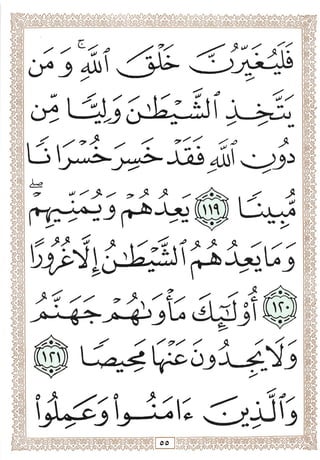 فَلَيُغَيِّرُنَّ خَلْقَ ٱللَّهِۚ وَمَن
يَتَّخِذِ ٱلشَّيْطَٰنَ وَلِيًّا مِّن
دُونِ ٱللَّهِ فَقَدْ خَسِرَ خُسْرَانًا
مُّبِينًا ١١٩ يَعِدُهُمْ وَيُمَنِّيهِمْۖ
وَمَا يَعِدُهُمُ ٱلشَّيْطَٰنُ إِلَّا غُرُورًا
١٢٠ أُو۟لَٰٓئِكَ مَأْوَىٰهُمْ جَهَنَّمُ
وَلَا يَجِدُونَ عَنْهَا مَحِيصًا ١٢١
وَٱلَّذِينَ ءَامَنُوا۟ وَعَمِلُوا۟
٥٥